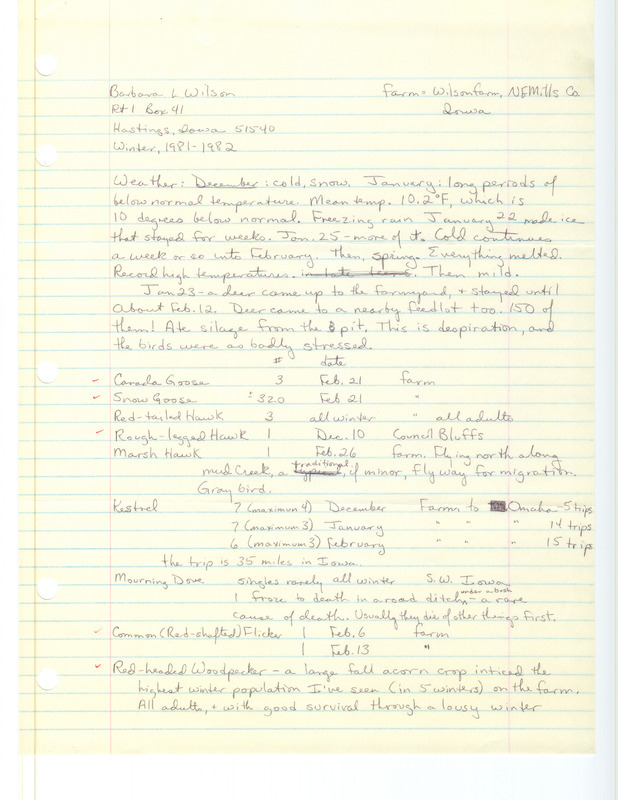 Barbara L Wilson Farm = Wilson farm, NE Mills Co
Rt 1 Box 41 Iowa
Hastings, Iowa 51540
Winter, 1981-1982
Weather: December: cold, snow. January: long periods of
below normal temperature. Mean temp. 10.2°F, which is
10 degrees below normal. Freezing rain January 22 made ice
that stayed for weeks. Jan. 25 - more of it. Cold continues
a week or so into February. Then, spring. Everything melted.
Record high temperatures. Then mild.
Jan 23 - a deer came up to the farmyard, + stayed until
about Feb. 12. Deer came to a nearby feedlot too. 150 of
them! Ate silage from the pit. This is despiration, and
the birds were as badly stressed.
# date
Canada Goose 3 Feb. 21 farm
Snow Goose ± 320 Feb 21 "
Red-tailed Hawk 3 all winter " all adults
Rough-legged Hawk 1 Dec. 10 Council Bluffs
Marsh Hawk 1 Feb. 26 farm. Flying north along
mud Creek, a traditional, if minor, flyway for migration.
Gray bird.
Kestrel 7 (maximum 4) December Farm to Omaha - 5 trips
7 (maximum 3) January " " " 14 trips
6 (maximum 3) February " " " 15 trips
the trip is 35 miles in Iowa.
Mourning Dove singles rarely all winter S.W. Iowa
1 froze to death in a road ditch under a bush - a rare
cause of death. Usually they die of other things first.
Common (Red-shafted) Flicker 1 Feb. 6 farm
1 Feb. 13 "
Red-headed Woodpecker - a large fall acorn crop inticed the
highest winter population I've seen (in 5 winters) on the farm.
All adults, + with good survival through a lousy winter